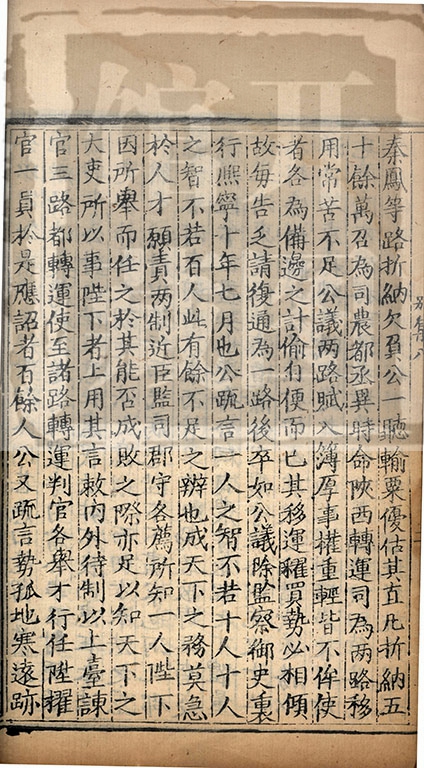 秦鳳等路折納欠負公一聽輸粟優估其直凡折納五
十餘萬召為司農都丞異時命陝西轉運司為兩路移
用常苦不足公議兩路賦入簿厚事權重輕皆不侔使
者各為備邊之計偷自便而已其移運糴買勢必相傾
故每告乏請復通為一路後卒如公議除監察御史裏
行熙寧十年七月也公疏言一人之智不若十人十人
之智不若百人此有餘不足之辨也成天下之務莫急
於人才願責两制近臣監司郡守各薦所知一人陛下
因所舉而任之於其能否成敗之際亦足以知天下之
大吏所以事陛下者上用其言敕內外待制以上臺諫
官三路都轉運使至諸路轉運判官各舉才行任陞擢
官一員於是應詔者百餘人公又疏言勢孤地寒遠跡